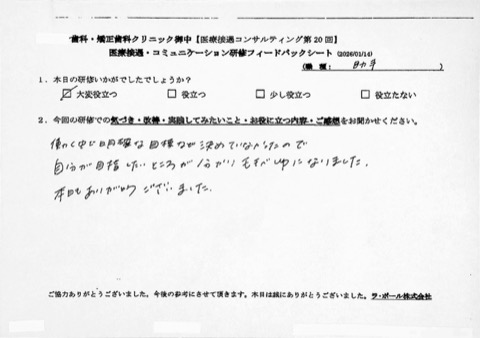 歯科・矯正歯科クリニック御中【医療接遇コンサルティング第20回】
医療接遇・コミュニケーション研修フィードバックシート (2026/01/14)
(職種: 助手 )
1.本日の研修いかがでしたでしょうか?
☑ 大変役立つ □ 役立つ □ 少し役立つ □ 役立たない
2.今回の研修での気づき・改善・実践してみたいこと・お役に立つ内容・ご感想をお聞かせください。
働く中で明確な目標などが決めていなかったので
自分が目指したいところが分かり モチベupになりました。
本日もありがとうございました。
ご協力ありがとうございました。今後の参考にさせて頂きます。本日は誠にありがとうございました。ラ・ポール株式会社